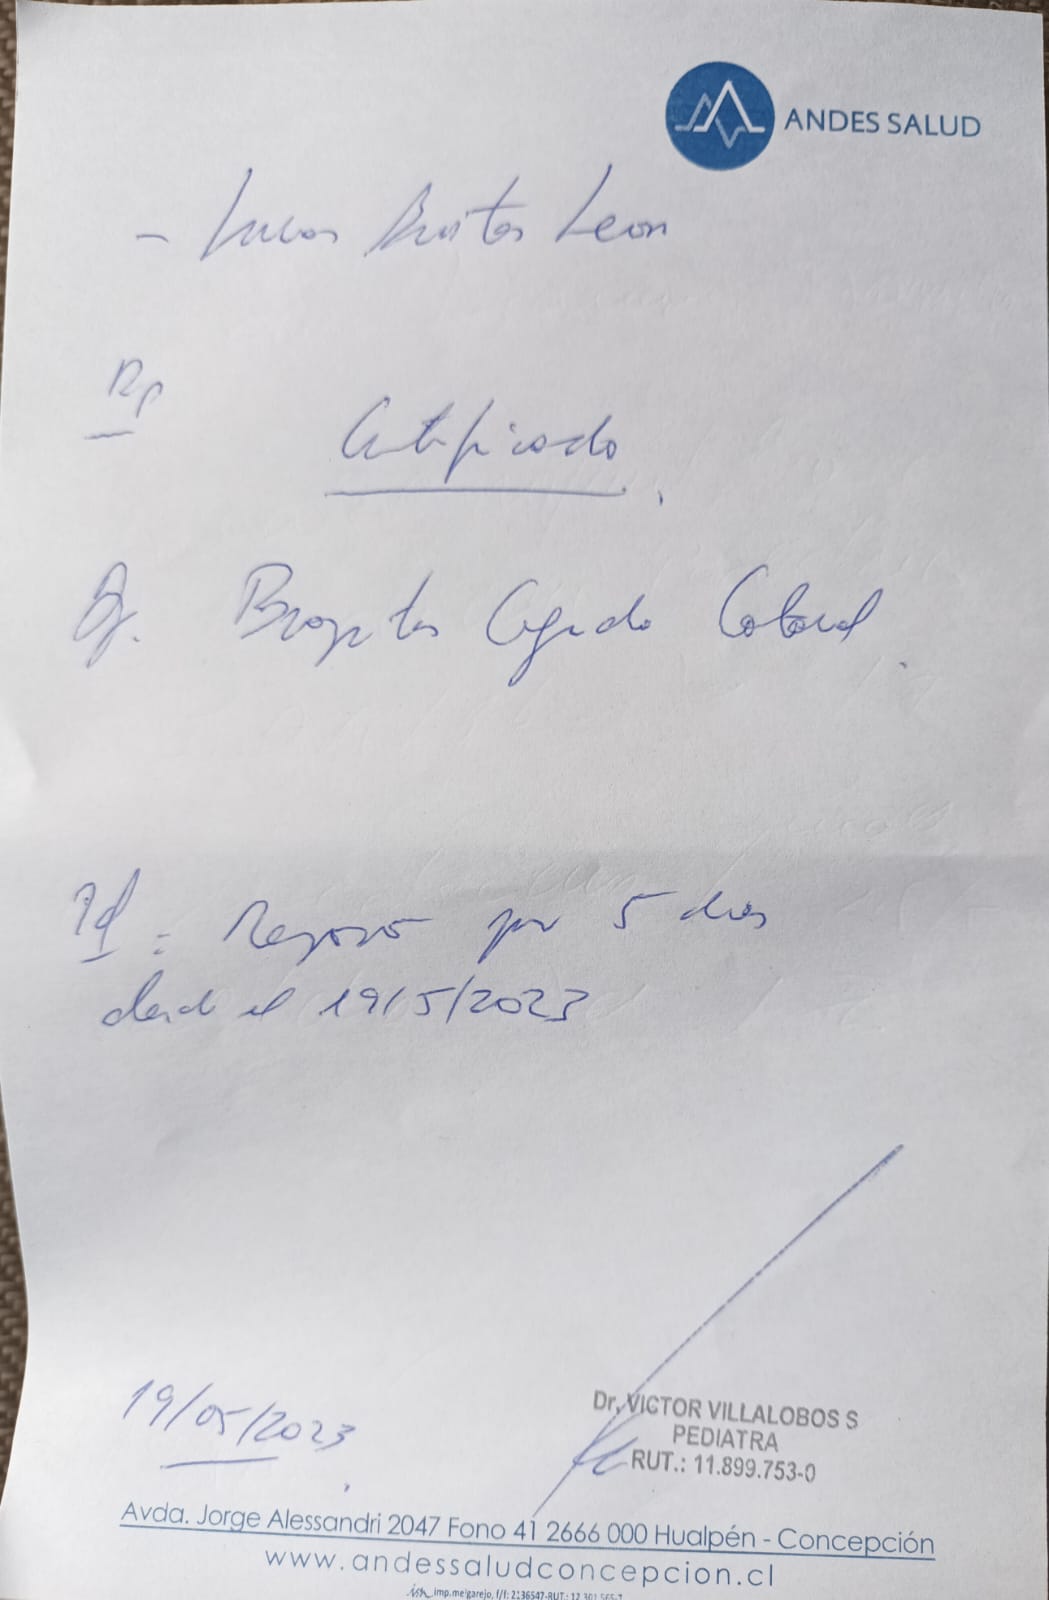 ANDES SALUD
- Lucas Bustos Leon
Rp
Certificado
Dg. Aguda
: Reposo por 5 dias
desde el 19/5/2023
19/05/2023
Dr. VICTOR VILLALOBOS S
PEDIATRA
RUT.: 11.899.753-0
Avda. Jorge Alessandri 2047 Fono 41 2666 000 Hualpén - Concepción
www.andessaludconcepcion.cl